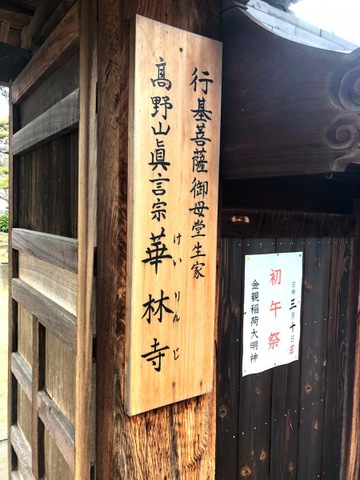 行基菩薩御母堂生家
高野山眞言宗華林寺
けいりんじ
日時三月十日
初午祭
金親稲荷大明神